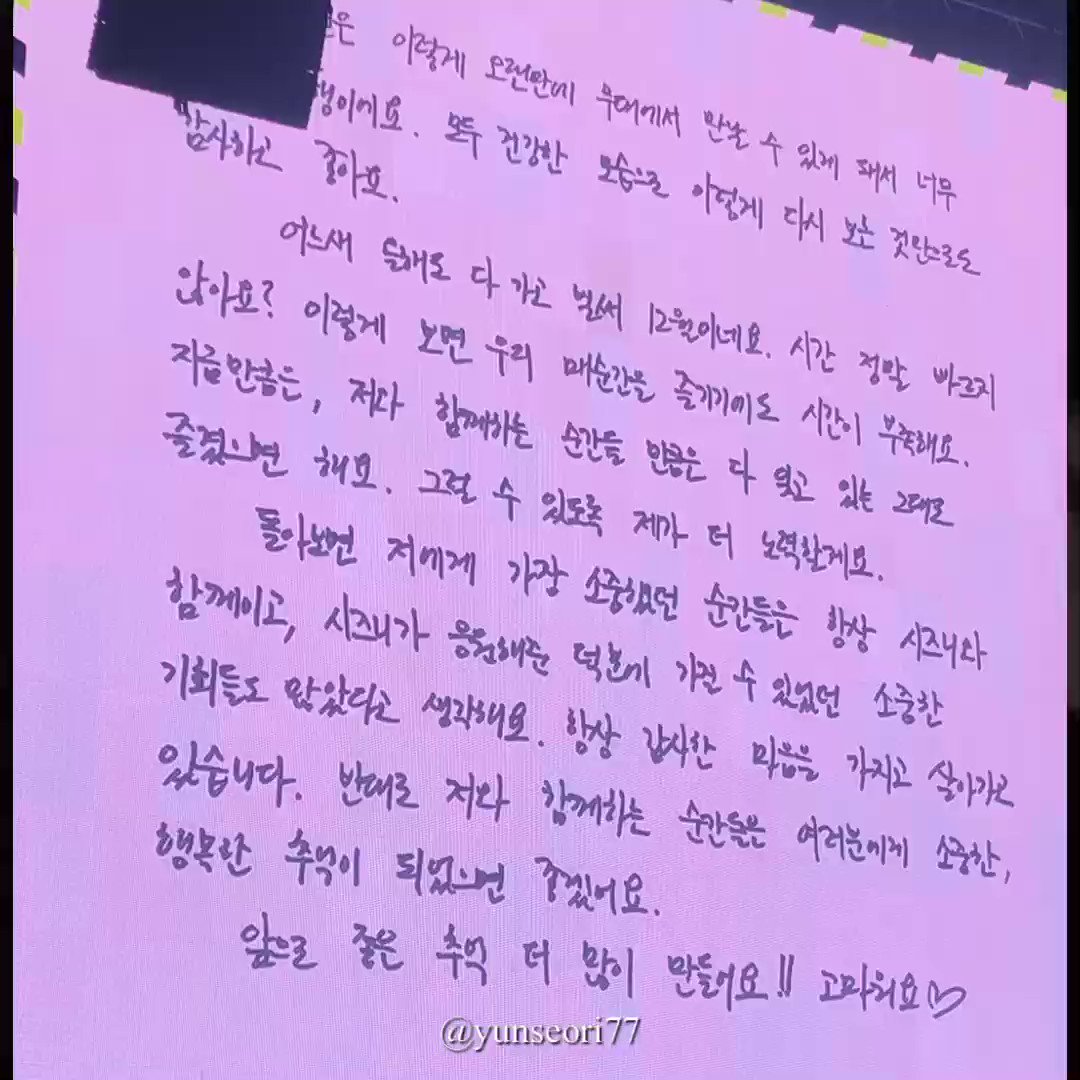 이렇게 오랜만에 무대에서 만날 수 있게 돼서 너무
모두 건강한 모습으로 이렇게 다시 보는 것만으로도
감사하고 좋아요.
어느새 올해도 다 가고 벌써 12월이네요. 시간 정말 빠르지
않아요? 이렇게 보면 우리 매순간을 즐기기에도 시간이 부족해요.
지금만큼은, 저와 함께하는 순간들 만큼은 다 잊고 있는 그대로
즐겼으면 해요. 그럴 수 있도록 제가 더 노력할게요.
돌아보면 저에게 가장 소중했던 순간들은 항상 시즈니와
함께이고, 시즈니가 응원해준 덕분에 가질 수 있었던 소중한
기회들도 많았다고 생각해요. 항상 감사한 마음을 가지고 살아가고
있습니다. 반대로 저와 함께하는 순간들은 여러분에게 소중한,
행복한 추억이 되었으면 좋겠어요.
앞으로 좋은 추억 더 많이 만들어요!! 고마워요♡
@yunseori77